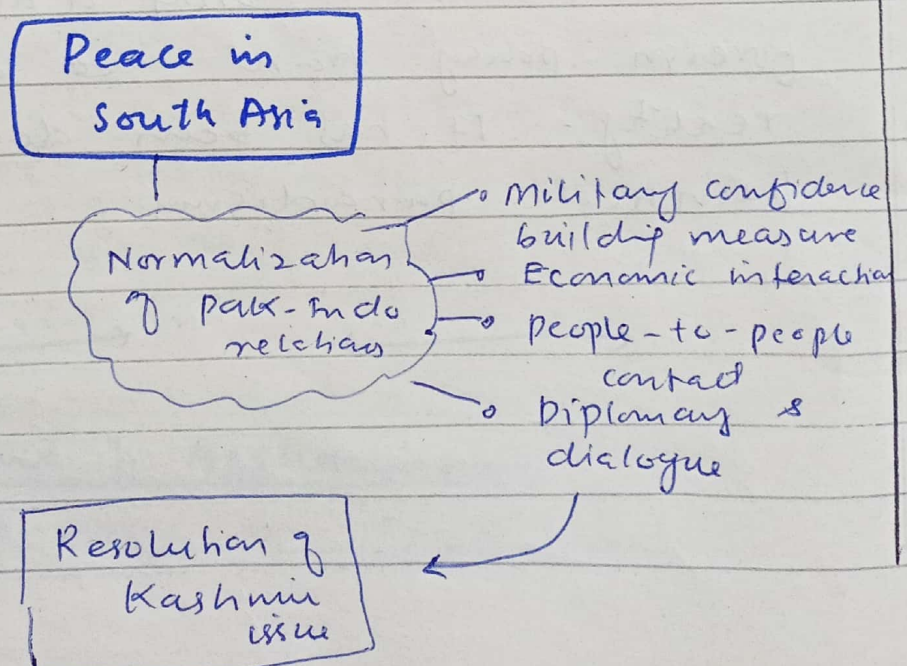 Peace in
South Asia
Normalization
of Pak-Indo
relations
Military confidence
building measure
Economic interaction
People-to-people
contact
Diplomacy &
dialogue
Resolution of
Kashmir
issue